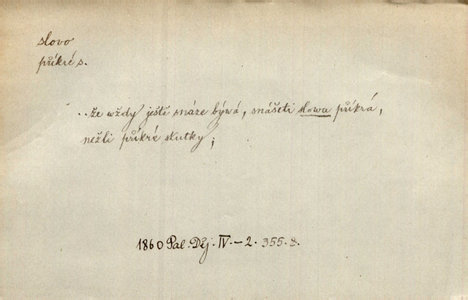 slovo
příkré s.
..že wždy ještě snáze bývá, snášeti slowa příkrá,
nežli příkré skutky;
1860 Pal. Děj. IV.-2. 355.